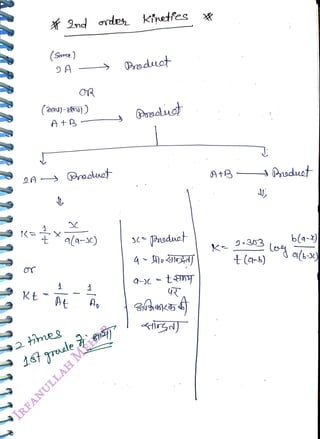 * 2nd order Kinetics *
(same)
2A → Product
OR
A + B → Product
2A → Product
K = 1/t × x/a(a-x)
or
Kt = 1/At - 1/A₀
x = Product
a = प्रा० सान्द्रता
a-x = t समय
पर
अभिकारक की
सान्द्रता
A+B → Product
K = 2.303/t(a-b) log b(a-x)/a(b-x)
2 times
1st grade में आया
IRFANULLAH